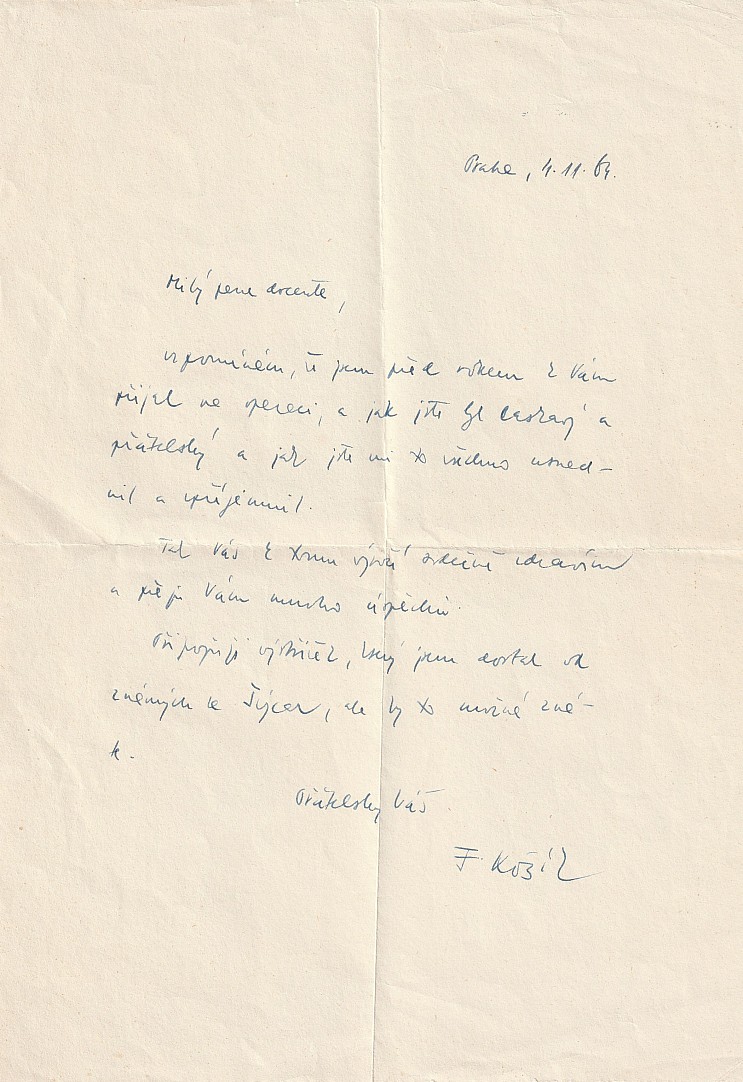 Praha, 4.11.64.
Milý pane docente,
vzpomínám, že jsem před rokem k Vám
přijel na operaci, a jak jste byl laskavý a
přátelský a jak jste mi to všechno usnad-
nil a zpříjemnil.
Tak Vás k tomu výročí srdečně zdravím
a přeji Vám mnoho úspěchů.
Připojuji výstřižek, který jsem dostal od
známých ze Švýcar, ale Vy to možná zná-
te.
Přátelsky Váš
F. Kožík